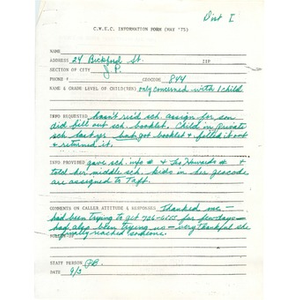 Dist I
C.W.E.C. INFORMATION FORM (MAY '75)
NAME
ADDRESS 24 Bickford St. ZIP
SECTION OF CITY J.P.
PHONE # GEOCODE 844
NAME & GRADE LEVEL OF CHILD(REN) only concerned with 1 child
INFO REQUESTED hasn't rec'd sch. assign for son
did fill out sch. booklet. Child in private
sch last yr. but got booklet & filled it out
& returned it.
INFO PROVIDED gave sch info # &
told her middle sch. kids in her geocode
are assigned to Taft.
COMMENTS ON CALLER ATTITUDE & RESPONSES Thanked me —
had been trying to get 726-6555 for few days —
had also been trying us — very thankful she
finally reached someone.
STAFF PERSON GB.
DATE 9/3